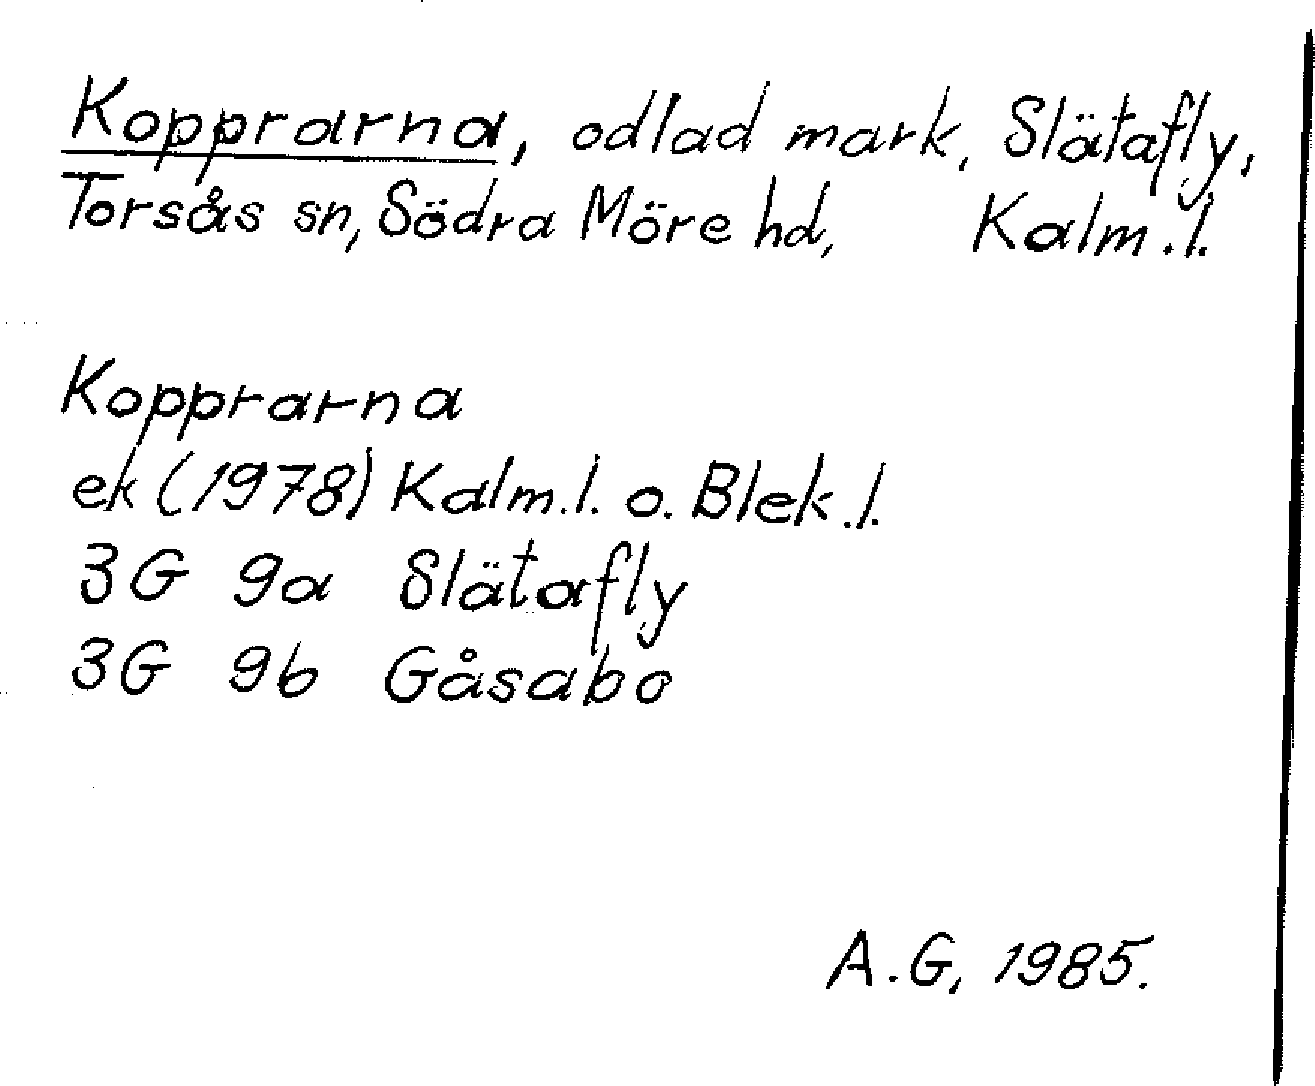 Kopprarna, odlad mark, Slätafly,
Torsås sn, Södra Möre hd, Kalm.l.
Kopprarna
ek (1978) Kalm.l. o. Blek.l.
3G 9a Slätafly
3G 9b Gåsabo
A.G, 1985.